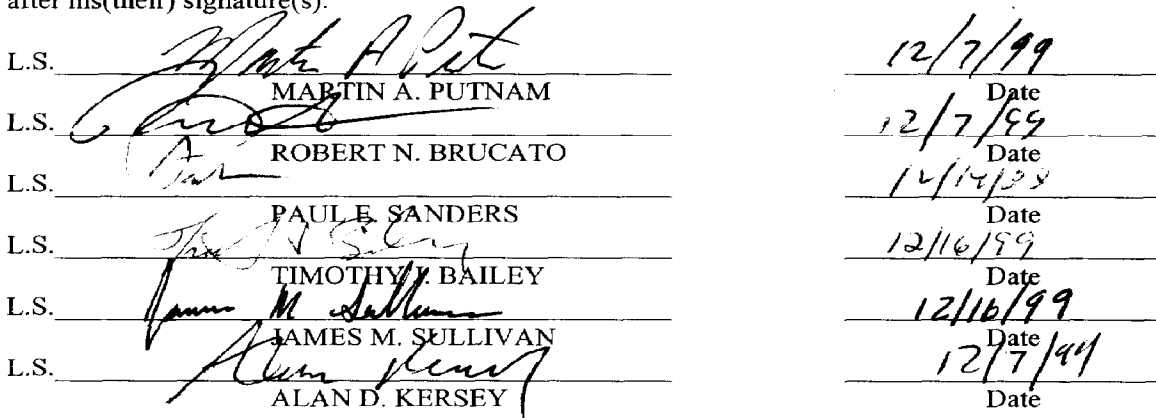 after his(their) signature(s).
L.S. Martin A Put 12/7/99
MARTIN A. PUTNAM Date
L.S. 12/7/99
ROBERT N. BRUCATO Date
L.S.
PAUL E. SANDERS Date
L.S. 12/16/99
TIMOTHY J. BAILEY Date
L.S. James M Sullivan 12/16/99
JAMES M. SULLIVAN Date
L.S. Alan Kersey 12/7/99
ALAN D. KERSEY Date